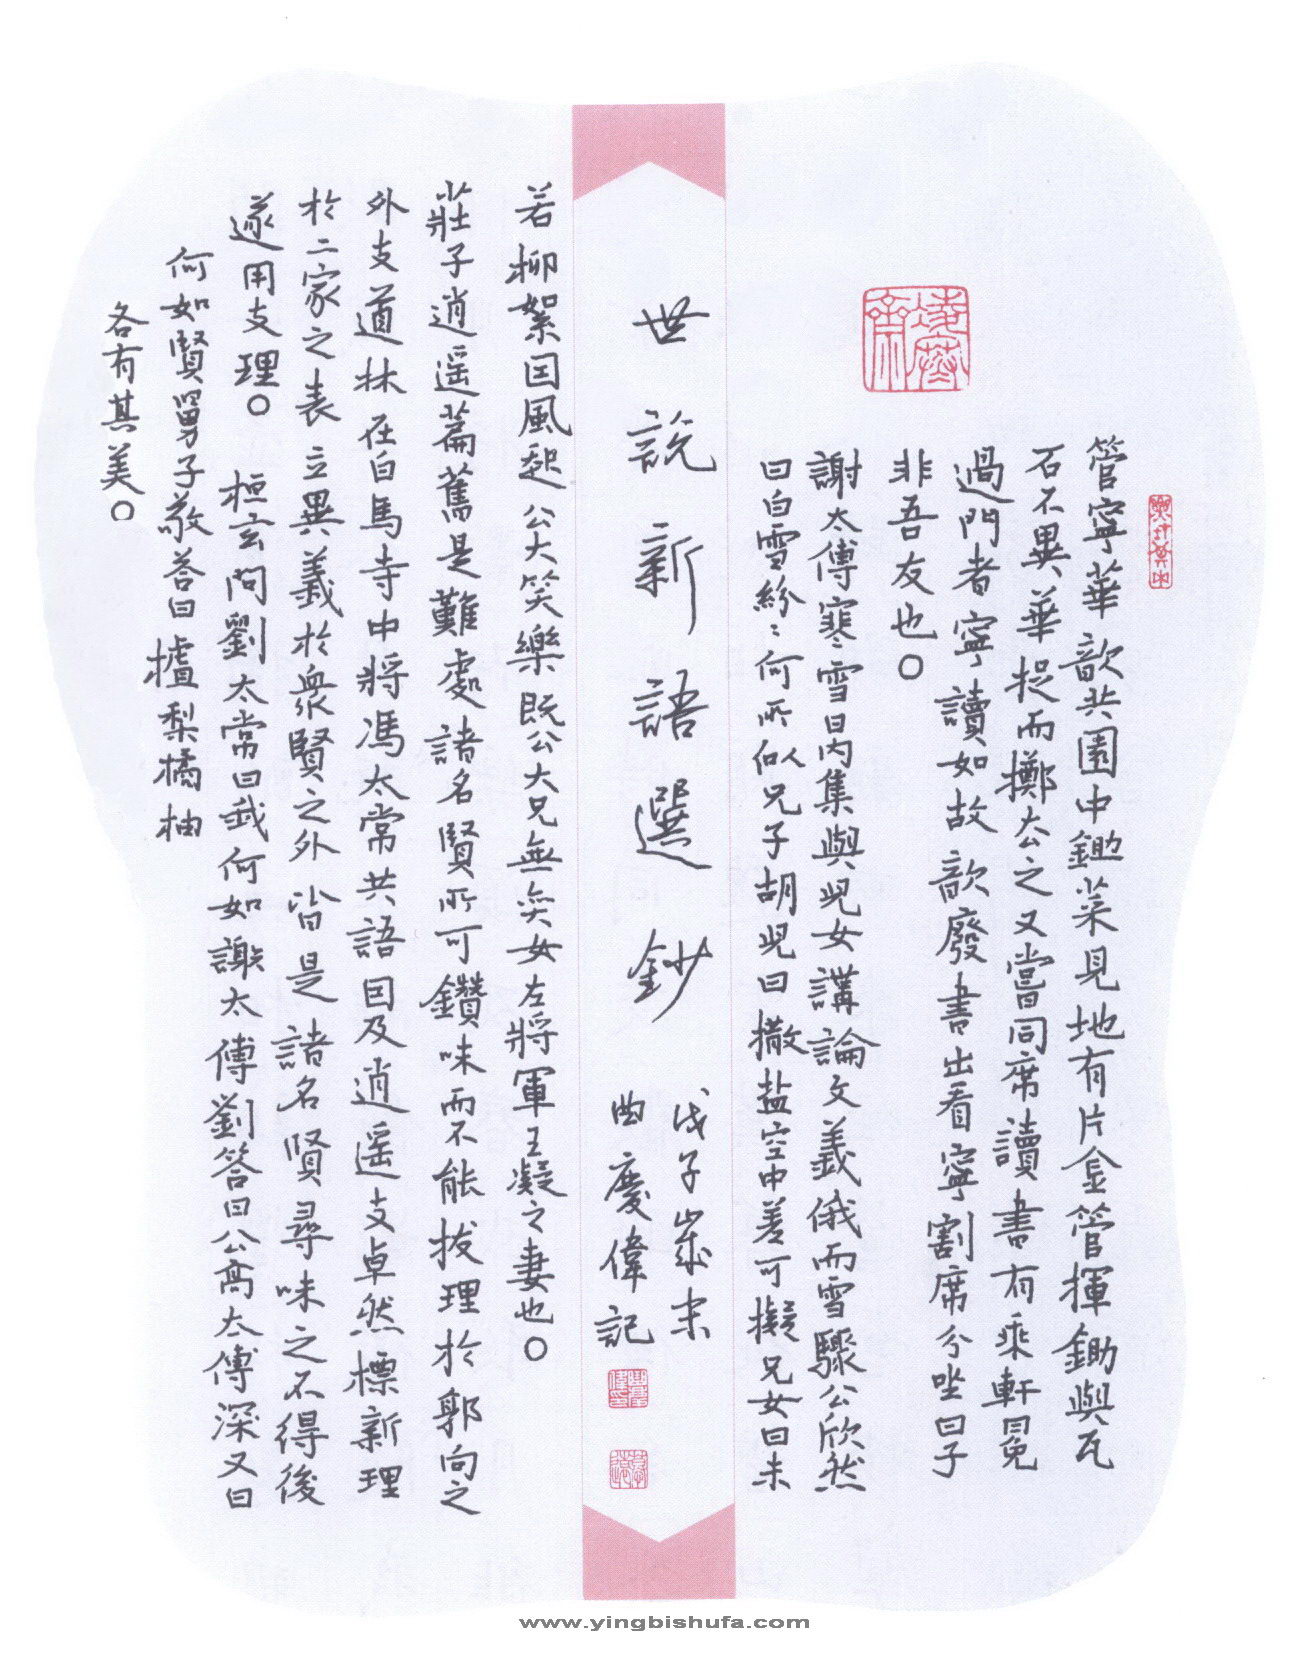 管寧華歆共園中鋤菜見地有片金管揮鋤與瓦
石不異華捉而擲去之又嘗同席讀書有乘軒冕
過門者寧讀如故歆廢書出看寧割席分坐曰子
非吾友也〇
謝太傅寒雪日內集與兒女講論文義俄而雪驟公欣然
曰白雪紛〻何所似兄子胡兒曰撒盐空中差可擬兄女曰未
世說新語選鈔
戊子歲末
曲慶偉記
若柳絮因風起公大笑樂既公大兄無奕女左將軍王凝之妻也〇
莊子逍遥篇舊是難處諸名賢所可鑽味而不能拔理於郭向之
外支道林在白馬寺中將馮太常共語因及逍遥支卓然標新理
於二家之表立異義於衆賢之外皆是諸名賢尋味之不得後
遂用支理〇 桓玄問劉太常曰我何如謝太傅劉答曰公高太傅深又曰
何如賢舅子敬答曰樝梨橘柚
各有其美〇
www.yingbishufa.com